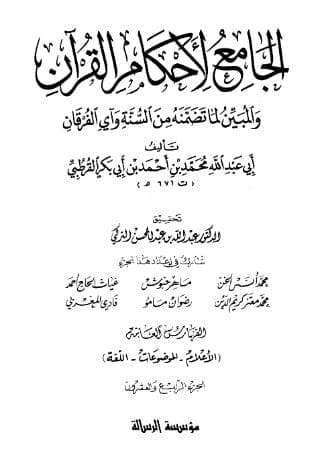 الجَامِعُ لِأَحْكَامِ القُرْآنِ
وَالمُبَيِّنُ لِمَا تَضَمَّنَهُ مِنَ السُّنَّةِ وَآيِ الفُرْقَانِ
تَأليفُ
أَبي عَبْدِ اللهِ مُحَمَّدِ بْنِ أَحْمَدَ بْنِ أَبي بَكْرٍ القُرْطُبيِّ
(ت ٦٧١ ه)
تحقيق
الدكتور عبد الله بن عبد المحسن التركي
شارك في إعداد هذا الجزء
محمد أنس الخن ماهر حبوش غياث الحاج أحمد
محمد معتز كريم الدين رضوان مامو فادي المغربي
الفهارس العامة
(الأعلام - الموضوعات - اللغة)
الجزء الرابع والعشرون
مؤسسة الرسالة